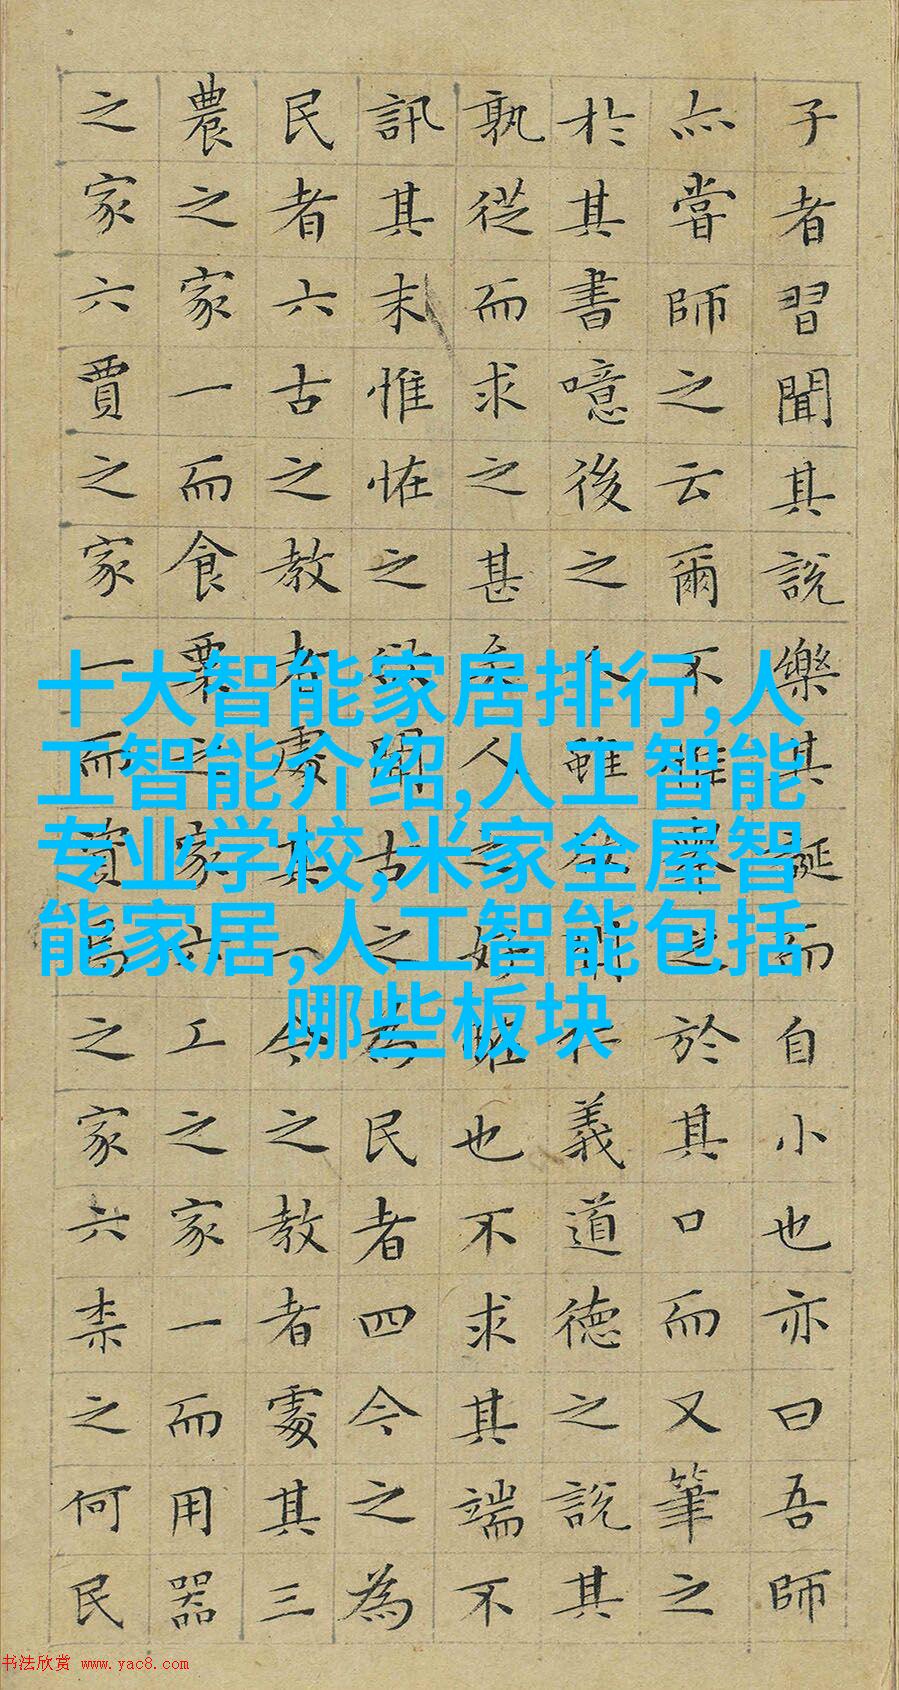 子者習聞其說樂其誕而自小也亦曰吾師
亦嘗師之云爾不惟舉之於其口而又筆之
於其書噫後之人雖欲聞仁義道德之說其
孰從而求之甚矣人之好怪也不求其端不
訊其末惟怪之欲聞古之為民者四今之為
民者六古之教者處其一今之教者處其三
農之家一而食粟之家六工之家一而用器
之家六賈之家一而資焉之家六柰之何民
十大智能家居排行,人
工智能介绍,人工智能
专业学校,米家全屋智
能家居,人工智能包括
哪些板块
书法欣赏 www.yac8.com